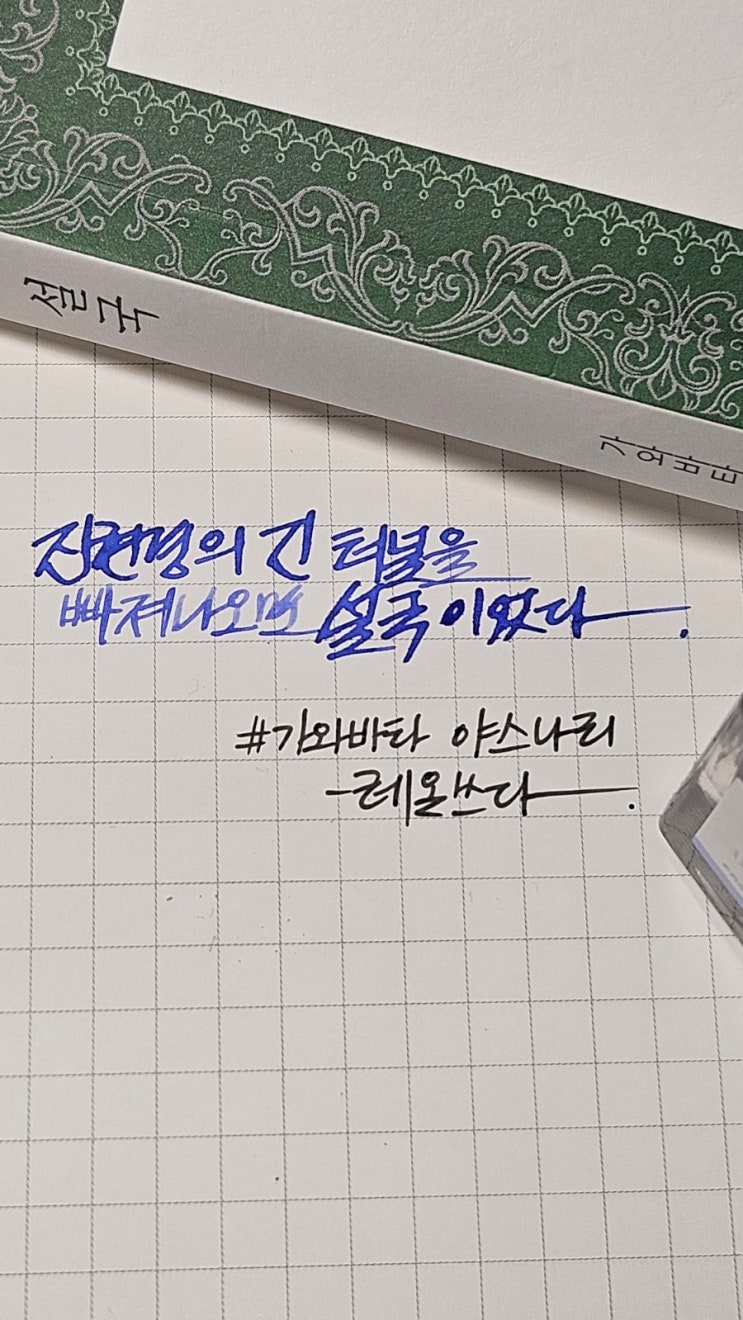 설국
가와바타
긴 터널을
빠져나오면 설국이었다.
#가와바타 야스나리
-레올쓰다.